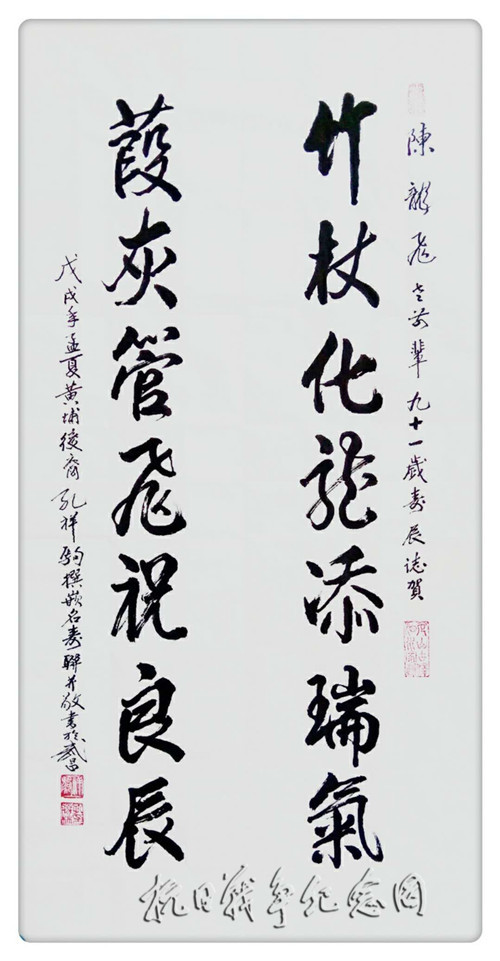 陳龍飛老前輩九十一歲壽辰誌賀
竹杖化龍添瑞氣
葭灰管飛祝良辰
戊戌年孟夏黃埔後裔孔祥駒撰嵌名壽聯并敬書於武昌
抗日戰爭紀念網